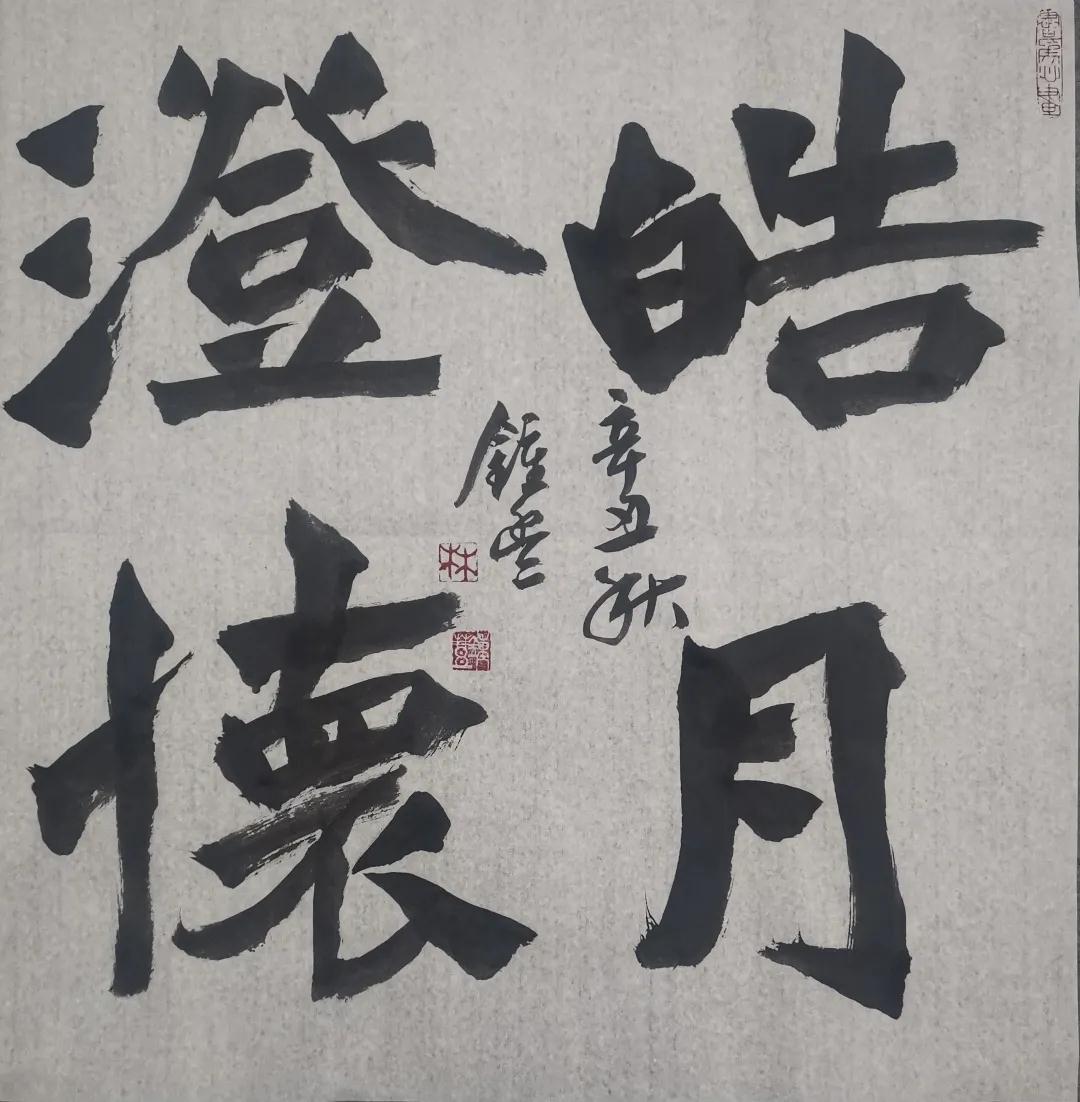 皓月
澄懷
辛丑秋
鍾書
林